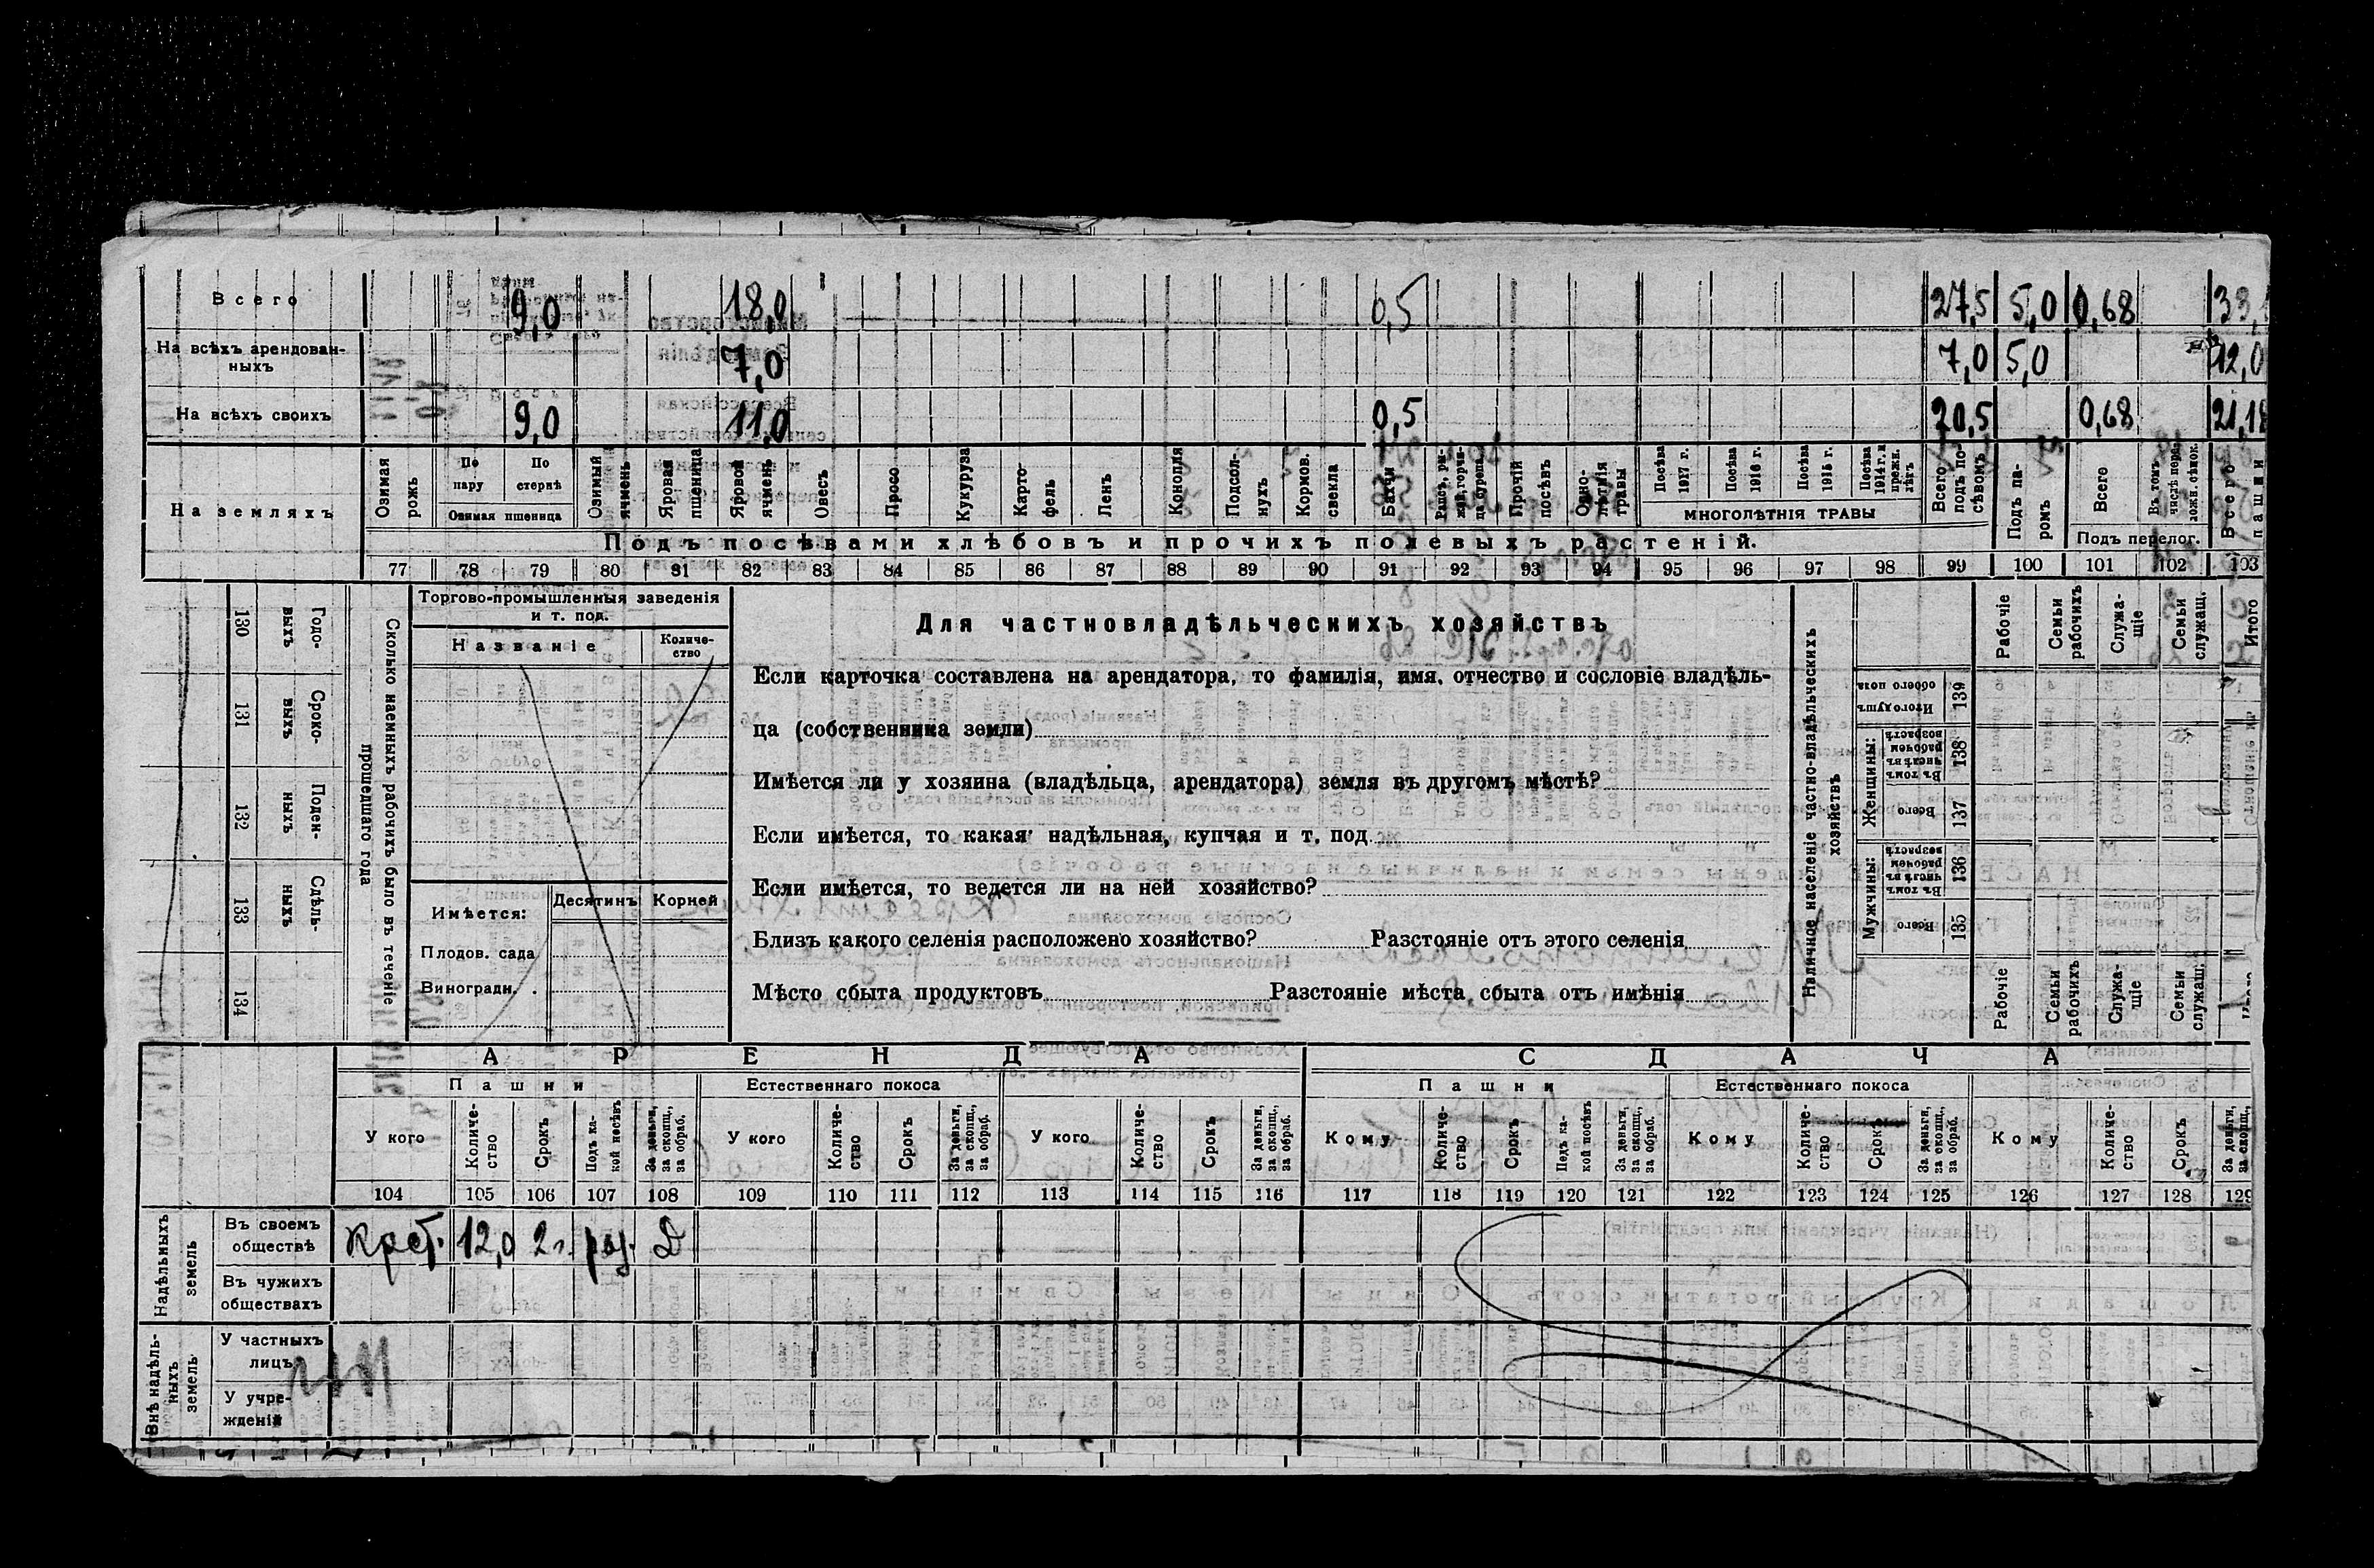 Всего 9,0 18,0 0,5 27,5 5,0 0,68 33,
На всѣхъ арендован-
ныхъ 7,0 7,0 5,0 12,0
На всѣхъ своихъ 9,0 11,0 0,5 20,5 0,68 21,18
На земляхъ
Озимая рожь
По пару
По стернѣ
Озимая пшеница
Озимый ячмень
Яровая пшеница
Яровой ячмень
Овесъ
Просо
Кукуруза
Карто-
фель
Ленъ
Конопля
Подсол-
нухъ
Кормов.
свекла
Бахчи
Рапсъ, ры-
жій, горчи-
ца, сурепа
Прочій
посѣвъ
Одно-
лѣтнія
травы
Посѣва
1917 г.
Посѣва
1916 г.
Посѣва
1915 г.
Посѣва
1914 г. и
прежн.
лѣтъ
МНОГОЛѢТНІЯ ТРАВЫ
Всего
подъ по-
сѣвомъ
Подъ па-
ромъ
Всего
Въ томъ
числѣ пере-
ложн. сѣнок.
Подъ перелог.
Всего
пашни
Подъ посѣвами хлѣбовъ и прочихъ полевыхъ растеній.
77 78 79 80 81 82 83 84 85 86 87 88 89 90 91 92 93 94 95 96 97 98 99 100 101 102 103
130 Годо-
выхъ
131 Сроко-
выхъ
132 Поден-
ныхъ
133 Сдѣль-
ныхъ
134
Сколько наемныхъ рабочихъ было въ теченіе
прошедшаго года
Торгово-промышленныя заведенія
и т. под.
Названіе
Количе-
ство
Имѣется:
Десятинъ
Корней
Плодов. сада
Виноградн. .
Для частновладѣльческихъ хозяйствъ
Если карточка составлена на арендатора, то фамилія, имя, отчество и сословіе владѣль-
ца (собственника земли)
Имѣется ли у хозяина (владѣльца, арендатора) земля въ другомъ мѣстѣ?
Если имѣется, то какая: надѣльная, купчая и т. под.
Если имѣется, то ведется ли на ней хозяйство?
Близъ какого селенія расположено хозяйство? Разстояніе отъ этого селенія
Мѣсто сбыта продуктовъ Разстояніе мѣста сбыта отъ имѣнія
Наличное населеніе частно-владѣльческихъ
хозяйствъ
Рабочіе
Семьи
рабочихъ
Служа-
щіе
Семьи
служащ.
Итого
Итого душъ
обоего пола
139
Женщины:
Въ томъ
числѣ въ
рабочемъ
возрастѣ
138
Всего
137
Мужчины:
Въ томъ
числѣ въ
рабочемъ
возрастѣ
136
Всего
135
Рабочіе
Семьи
рабочихъ
Служа-
щіе
Семьи
служащ.
АРЕНДА
СДАЧА
Пашни
Естественнаго покоса
Пашни
Естественнаго покоса
У кого
Количе-
ство
Срокъ
Подъ ка-
кой посѣвъ
За деньги,
за скопщ.,
за обраб.
У кого
Количе-
ство
Срокъ
За деньги,
за скопщ.,
за обраб.
У кого
Количе-
ство
Срокъ
За деньги,
за скопщ.,
за обраб.
Кому
Количе-
ство
Срокъ
Подъ ка-
кой посѣвъ
За деньги,
за скопщ.,
за обраб.
Кому
Количе-
ство
Срокъ
За деньги,
за скопщ.,
за обраб.
Кому
Количе-
ство
Срокъ
За деньги,
за скопщ.,
104 105 106 107 108 109 110 111 112 113 114 115 116 117 118 119 120 121 122 123 124 125 126 127 128 129
Надѣльныхъ
земель
Въ своемъ
обществѣ
12,0 2 г. Д
Въ чужихъ
обществахъ
Внѣ надѣль-
ныхъ
земель
У частныхъ
лицъ
У учре-
жденій